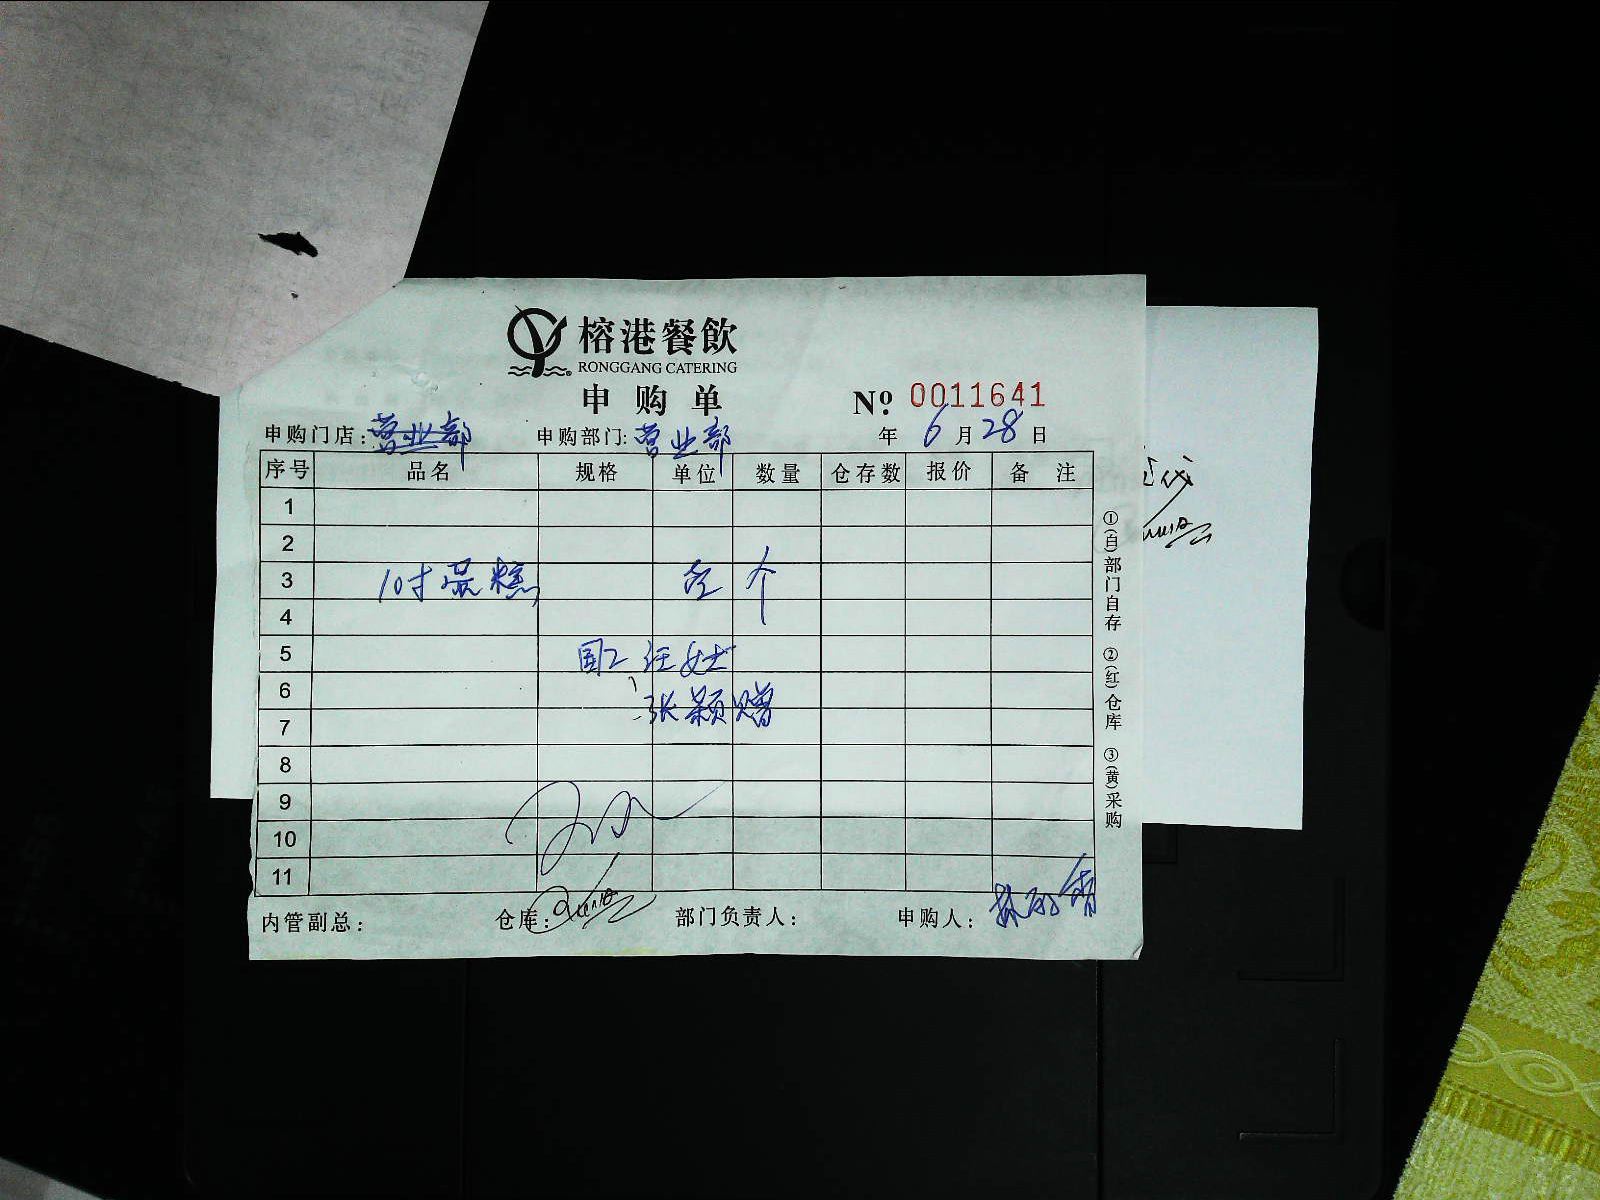 榕港餐飲
RONGGANG CATERING
申购单 №: 0011641
申购门店: 营业部 申购部门: 营业部 年 6 月 28 日
序号 品名 规格 单位 数量 仓存数 报价 备注
1
2
3 10寸蛋糕 个
4
5 汪女士
6
7 张颖赠
8
9
10
11
内管副总: 仓库: 部门负责人: 申购人:
①(白)部门自存 ②(红)仓库 ③(黄)采购